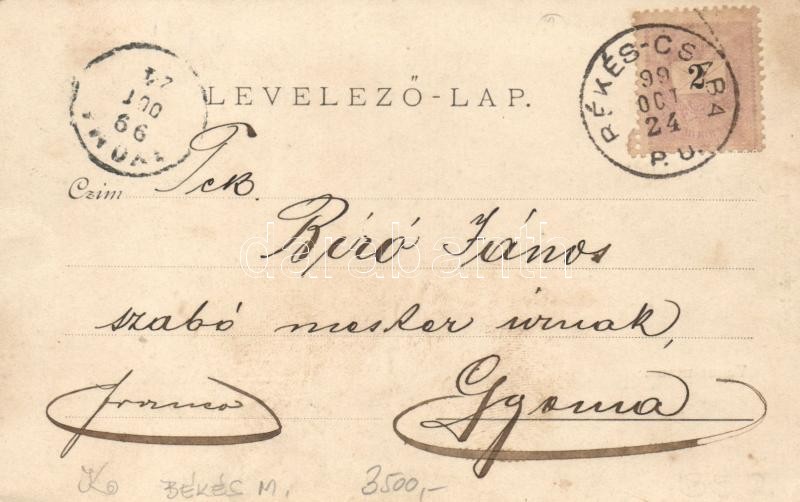 LEVELEZŐ-LAP.
BÉKÉS-CSABA
99
OCT
24
P. U.
2
24
OCT
99
Czim Tek.
Biró János
szabó mester úrnak,
franco
Gyoma
darabanth
BÉKÉS M.
3500,-